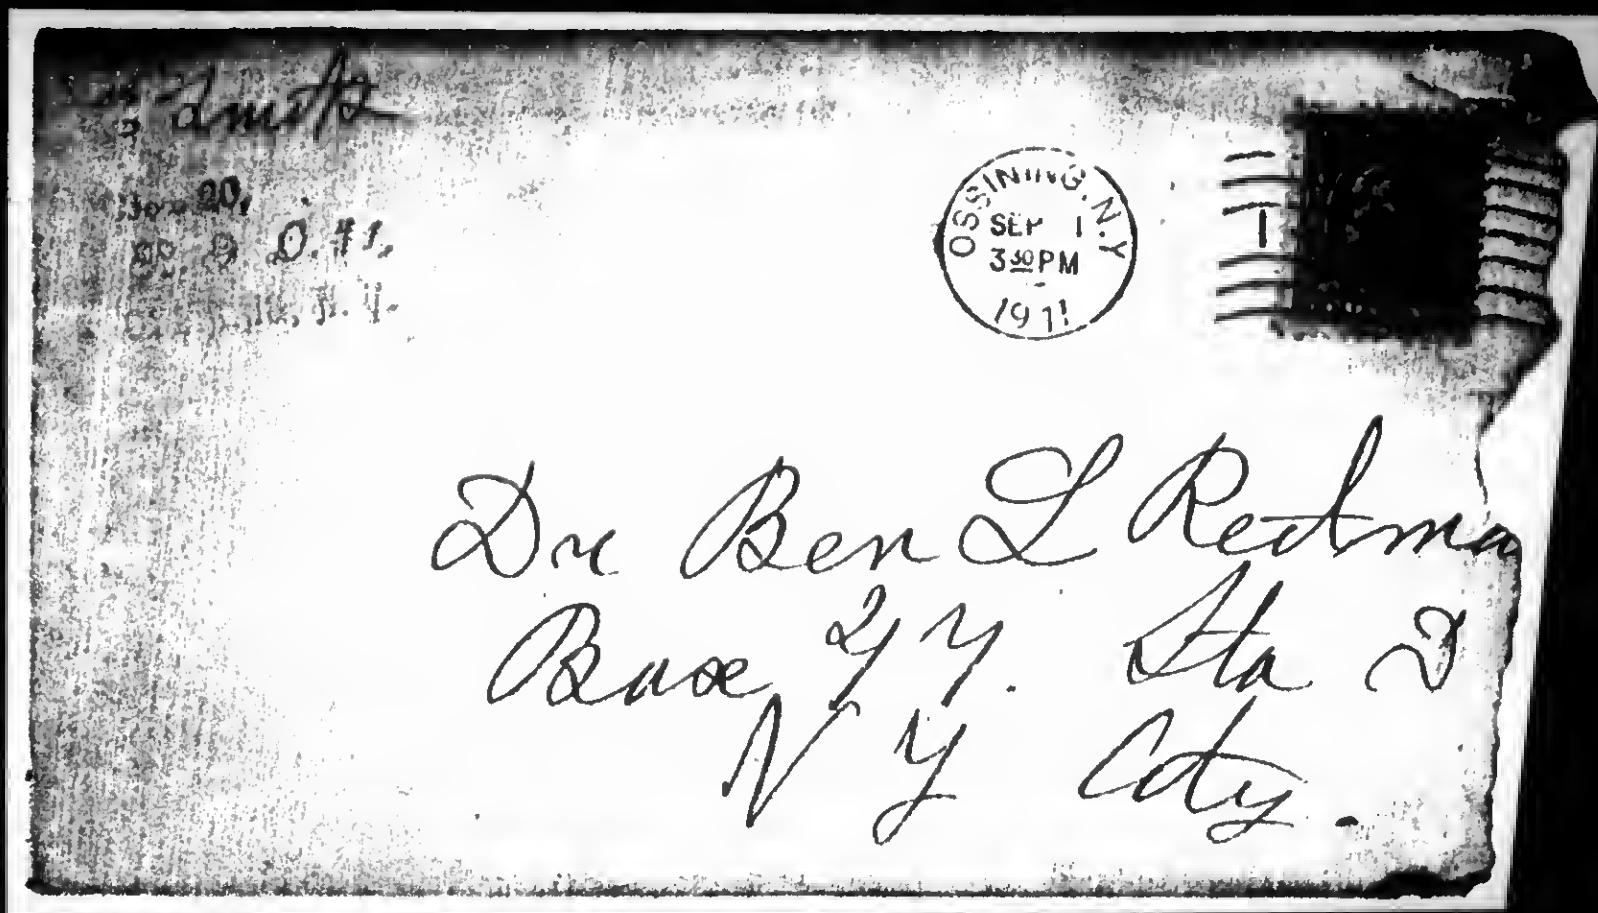 Smith
20,
OSSINING, N.Y.
SEP 1
3 30 PM
1911
Dr Ben L Redma
Box 77. Sta D
N Y City.